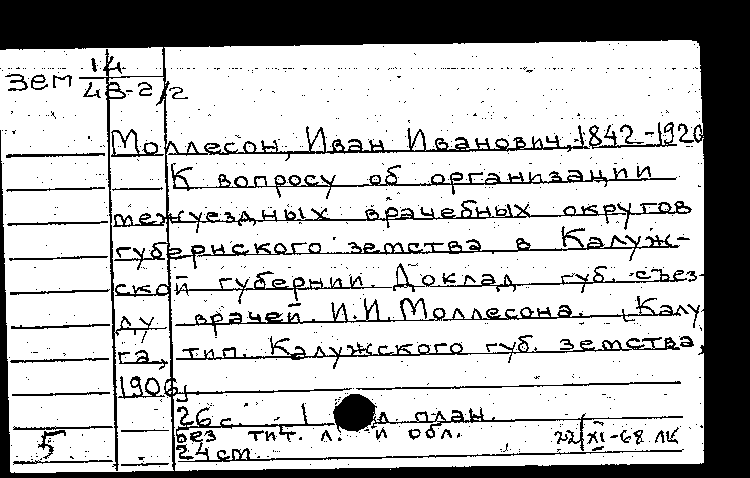 зем 14
48-2/2
Моллесон, Иван Иванович, 1842-1920
К вопросу об организации
межуездных врачебных округов
губернского земства в Калуж-
ской губернии. Доклад губ. съез-
ду врачей И.И. Моллесона. [Калу-
га, тип. Калужского губ. земства,
1906]
26 с. 1 л. план.
без тит. л. и обл.
5 24 cm. 22/XI-68 ЛК